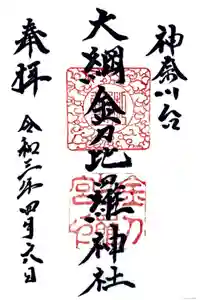 神奈川台
大綱金刀比羅神社
奉拝
令和三年四月六日